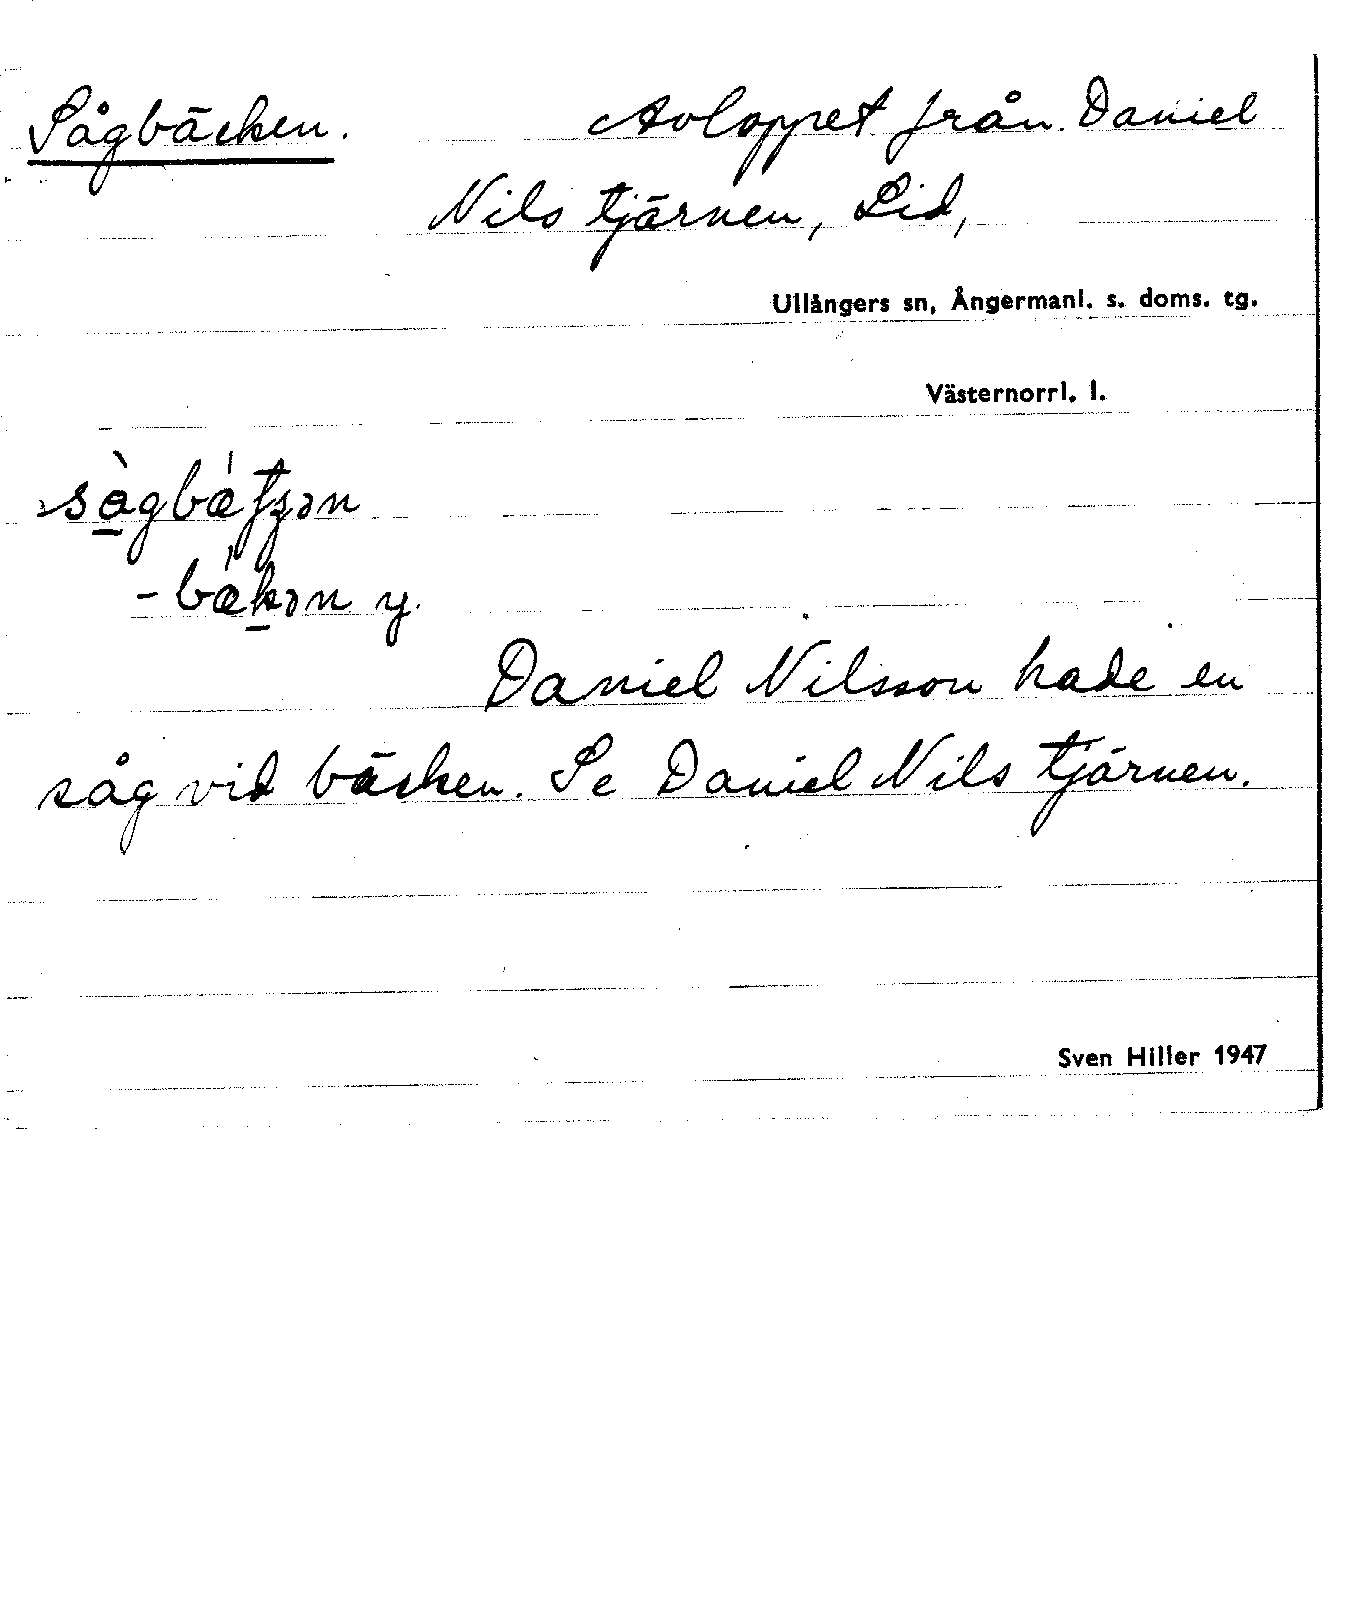 Sågbäcken. Avloppet från Daniel
Nils tjärnen, Lid,
Ullångers sn, Ångermanl. s. doms. tg.
Västernorrl. l.
-bækən y.
Daniel Nilsson hade en
såg vid bäcken. Se Daniel Nils tjärnen.
Sven Hiller 1947